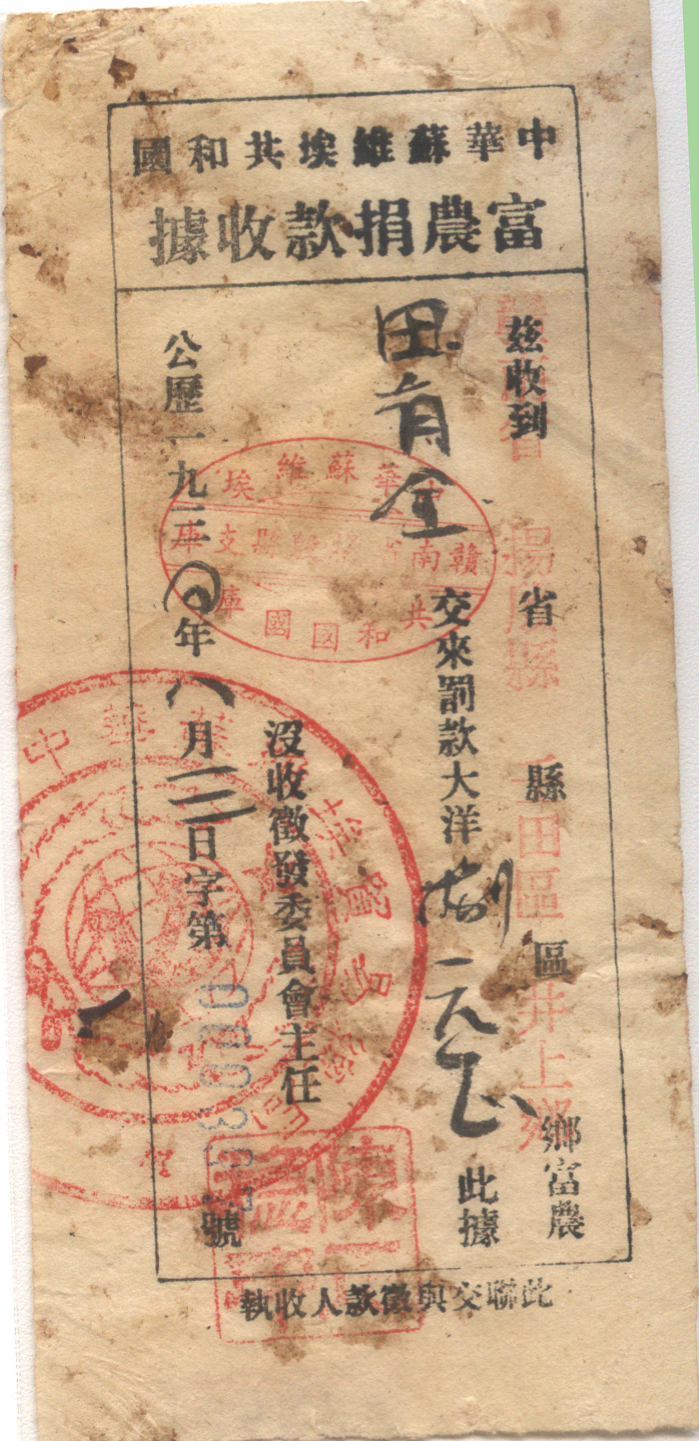 中華蘇維埃共和國
富農捐款收據
茲收到 省 縣 區 鄉富農
贛南省 楊殷縣 田區 井上鄉
田 交來罰款大洋捌元正 此據
沒收徵發委員會主任
公歷一九三 年八月三日字第 號
中華蘇維埃
贛南省楊殷縣支庫
共和國國庫
此聯交與徵款人收執